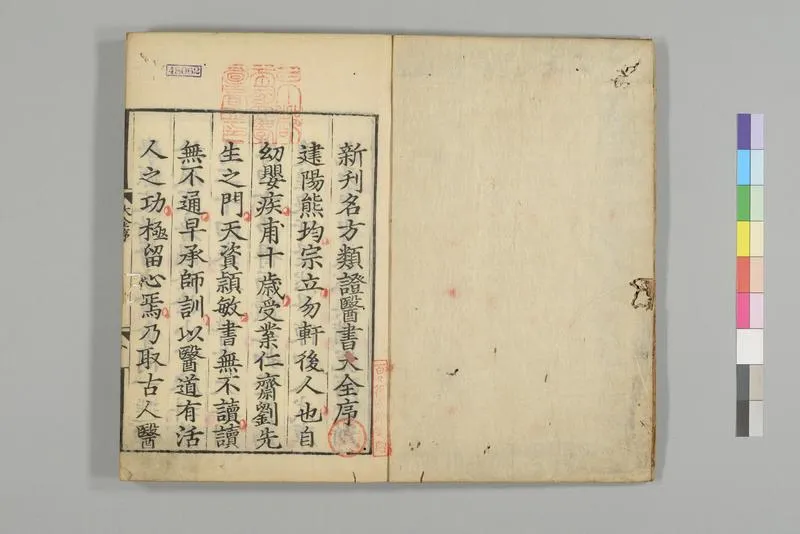 新刊名方類證醫書大全序
建陽熊均宗立勿軒後人也自
幼嬰疾甫十歳受業仁齋劉先
生之門天資穎敏書無不讀讀
無不通早承師訓以醫道有活
人之功極留心焉乃取古人醫
大全序
48062